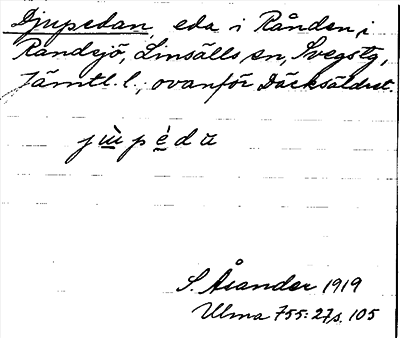 Djupedan, eda i Rånden, i
Randsjö, Linsälls sn, Svegs tg,
Jämtl. l.; ovanför Däcksäldret.
jùpédu
S. Åsander 1919
Ulma 755:27 s. 105